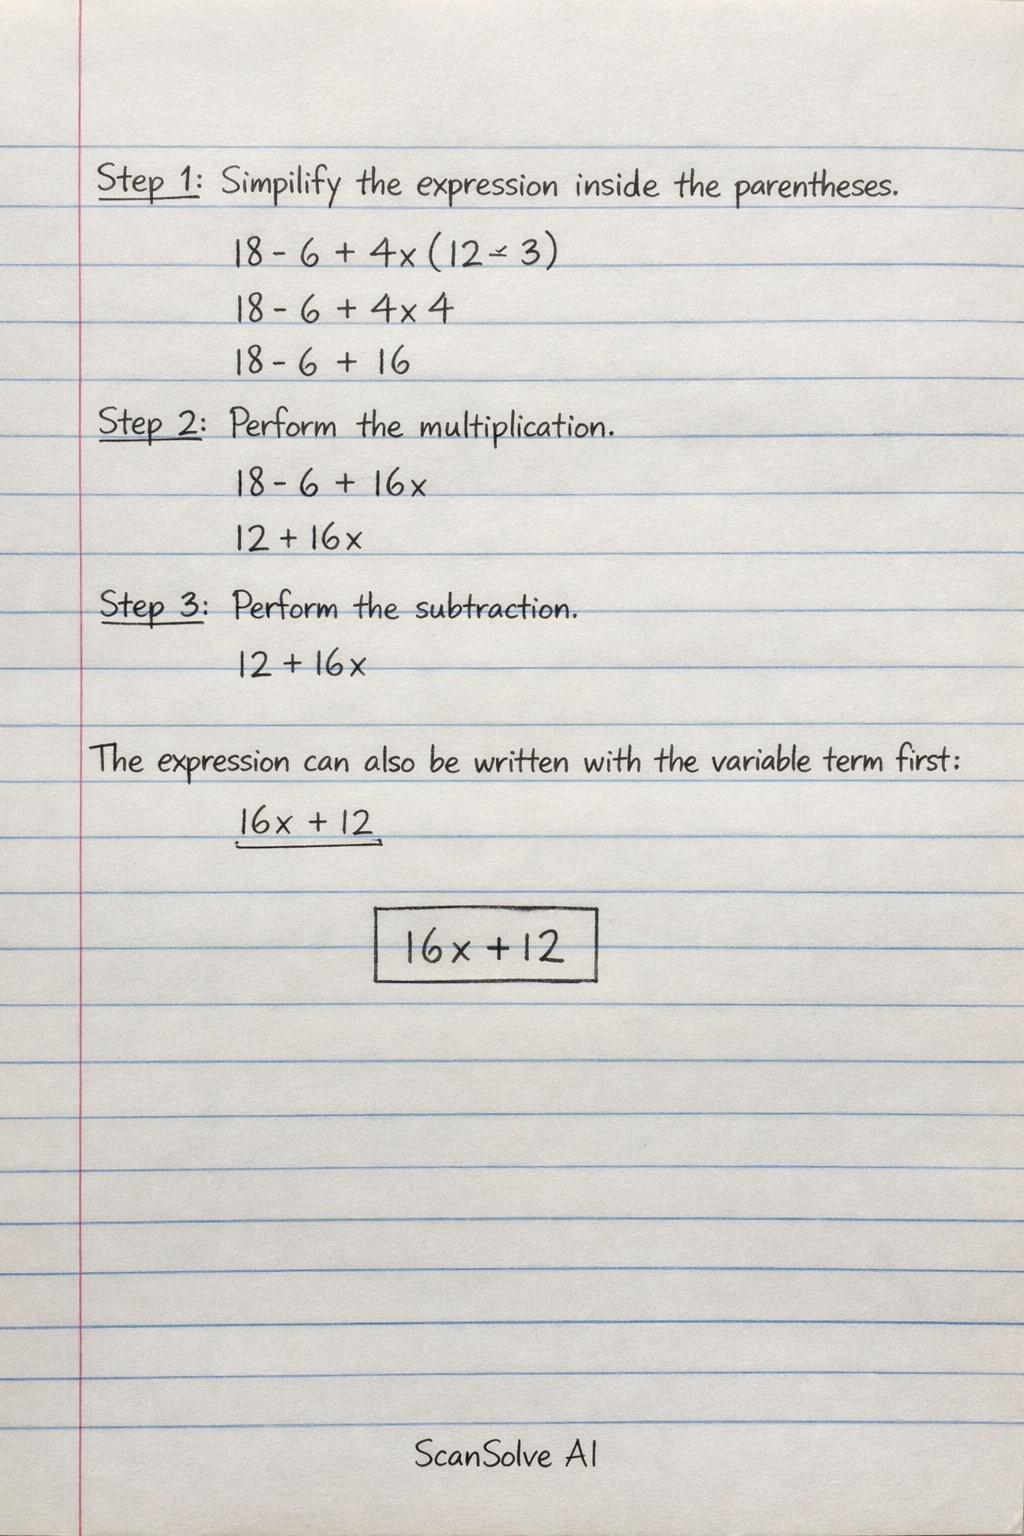 Step 1: Simpilify the expression inside the parentheses.
18 - 6 + 4x (12 ÷ 3)
18 - 6 + 4x 4
18 - 6 + 16
Step 2: Perform the multiplication.
18 - 6 + 16x
12 + 16x
Step 3: Perform the subtraction.
12 + 16x
The expression can also be written with the variable term first:
16x + 12
16x + 12
ScanSolve AI